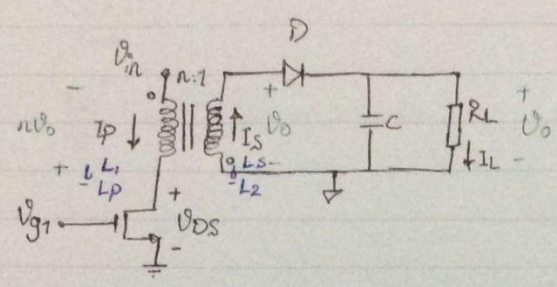 D
Vin
n:1
-
+
+
nVo
Ip
Is
Vo
C
RL
Vo
+
L1
Ls-
IL
-
- Lp
-L2
+
Vg1
VDS
-